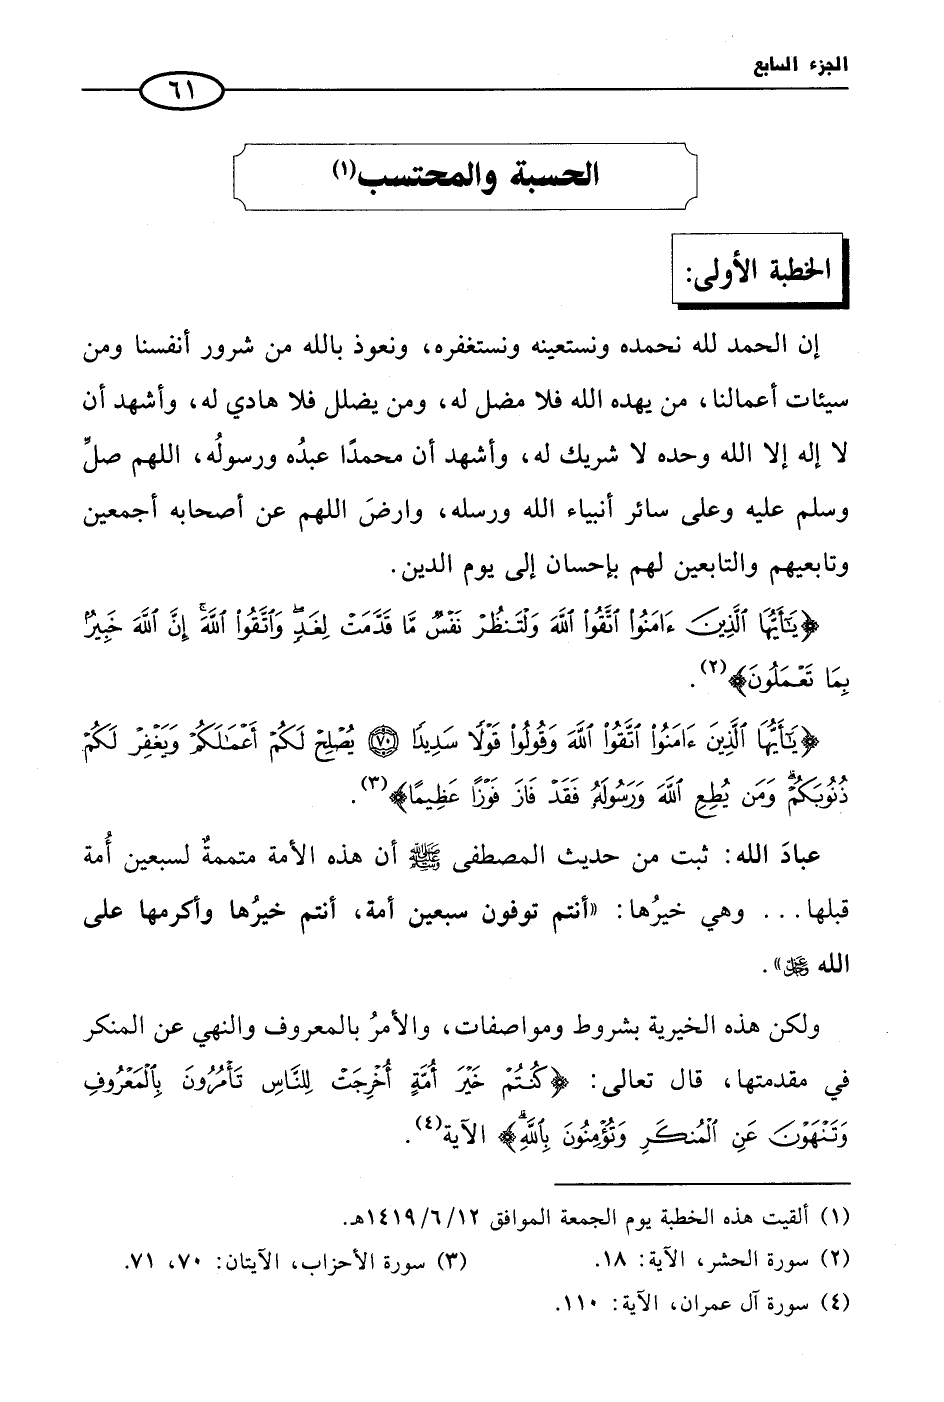 الجزء السابع
٦١
الحسبة والمحتسب(١)
الخطبة الأولى:
إن الحمد لله نحمده ونستعينه ونستغفره، ونعوذ بالله من شرور أنفسنا ومن
سيئات أعمالنا، من يهده الله فلا مضل له، ومن يضلل فلا هادي له، وأشهد أن
لا إله إلا الله وحده لا شريك له، وأشهد أن محمدًا عبدُه ورسولُه، اللهم صلِّ
وسلم عليه وعلى سائر أنبياء الله ورسله، وارضَ اللهم عن أصحابه أجمعين
وتابعيهم والتابعين لهم بإحسان إلى يوم الدين.
﴿يَٰٓأَيُّهَا ٱلَّذِينَ ءَامَنُوا۟ ٱتَّقُوا۟ ٱللَّهَ وَلْتَنظُرْ نَفْسٌ مَّا قَدَّمَتْ لِغَدٍ ۖ وَٱتَّقُوا۟ ٱللَّهَ ۚ إِنَّ ٱللَّهَ خَبِيرٌۢ
بِمَا تَعْمَلُونَ﴾(٢).
﴿يَٰٓأَيُّهَا ٱلَّذِينَ ءَامَنُوا۟ ٱتَّقُوا۟ ٱللَّهَ وَقُولُوا۟ قَوْلًا سَدِيدًا ۝٧٠ يُصْلِحْ لَكُمْ أَعْمَٰلَكُمْ وَيَغْفِرْ لَكُمْ
ذُنُوبَكُمْ ۗ وَمَن يُطِعِ ٱللَّهَ وَرَسُولَهُۥ فَقَدْ فَازَ فَوْزًا عَظِيمًا﴾(٣).
عبادَ الله: ثبت من حديث المصطفى ﷺ أن هذه الأمة متممةٌ لسبعين أُمة
قبلها... وهي خيرُها: «أنتم توفون سبعين أمة، أنتم خيرُها وأكرمها على
الله عز وجل».
ولكن هذه الخيرية بشروط ومواصفات، والأمرُ بالمعروف والنهي عن المنكر
في مقدمتها، قال تعالى: ﴿كُنتُمْ خَيْرَ أُمَّةٍ أُخْرِجَتْ لِلنَّاسِ تَأْمُرُونَ بِٱلْمَعْرُوفِ
وَتَنْهَوْنَ عَنِ ٱلْمُنكَرِ وَتُؤْمِنُونَ بِٱللَّهِ ۗ﴾ الآية(٤).
(١) ألقيت هذه الخطبة يوم الجمعة الموافق ١٤١٩/٦/١٢هـ.
(٢) سورة الحشر، الآية: ١٨. (٣) سورة الأحزاب، الآيتان: ٧٠، ٧١.
(٤) سورة آل عمران، الآية: ١١٠.